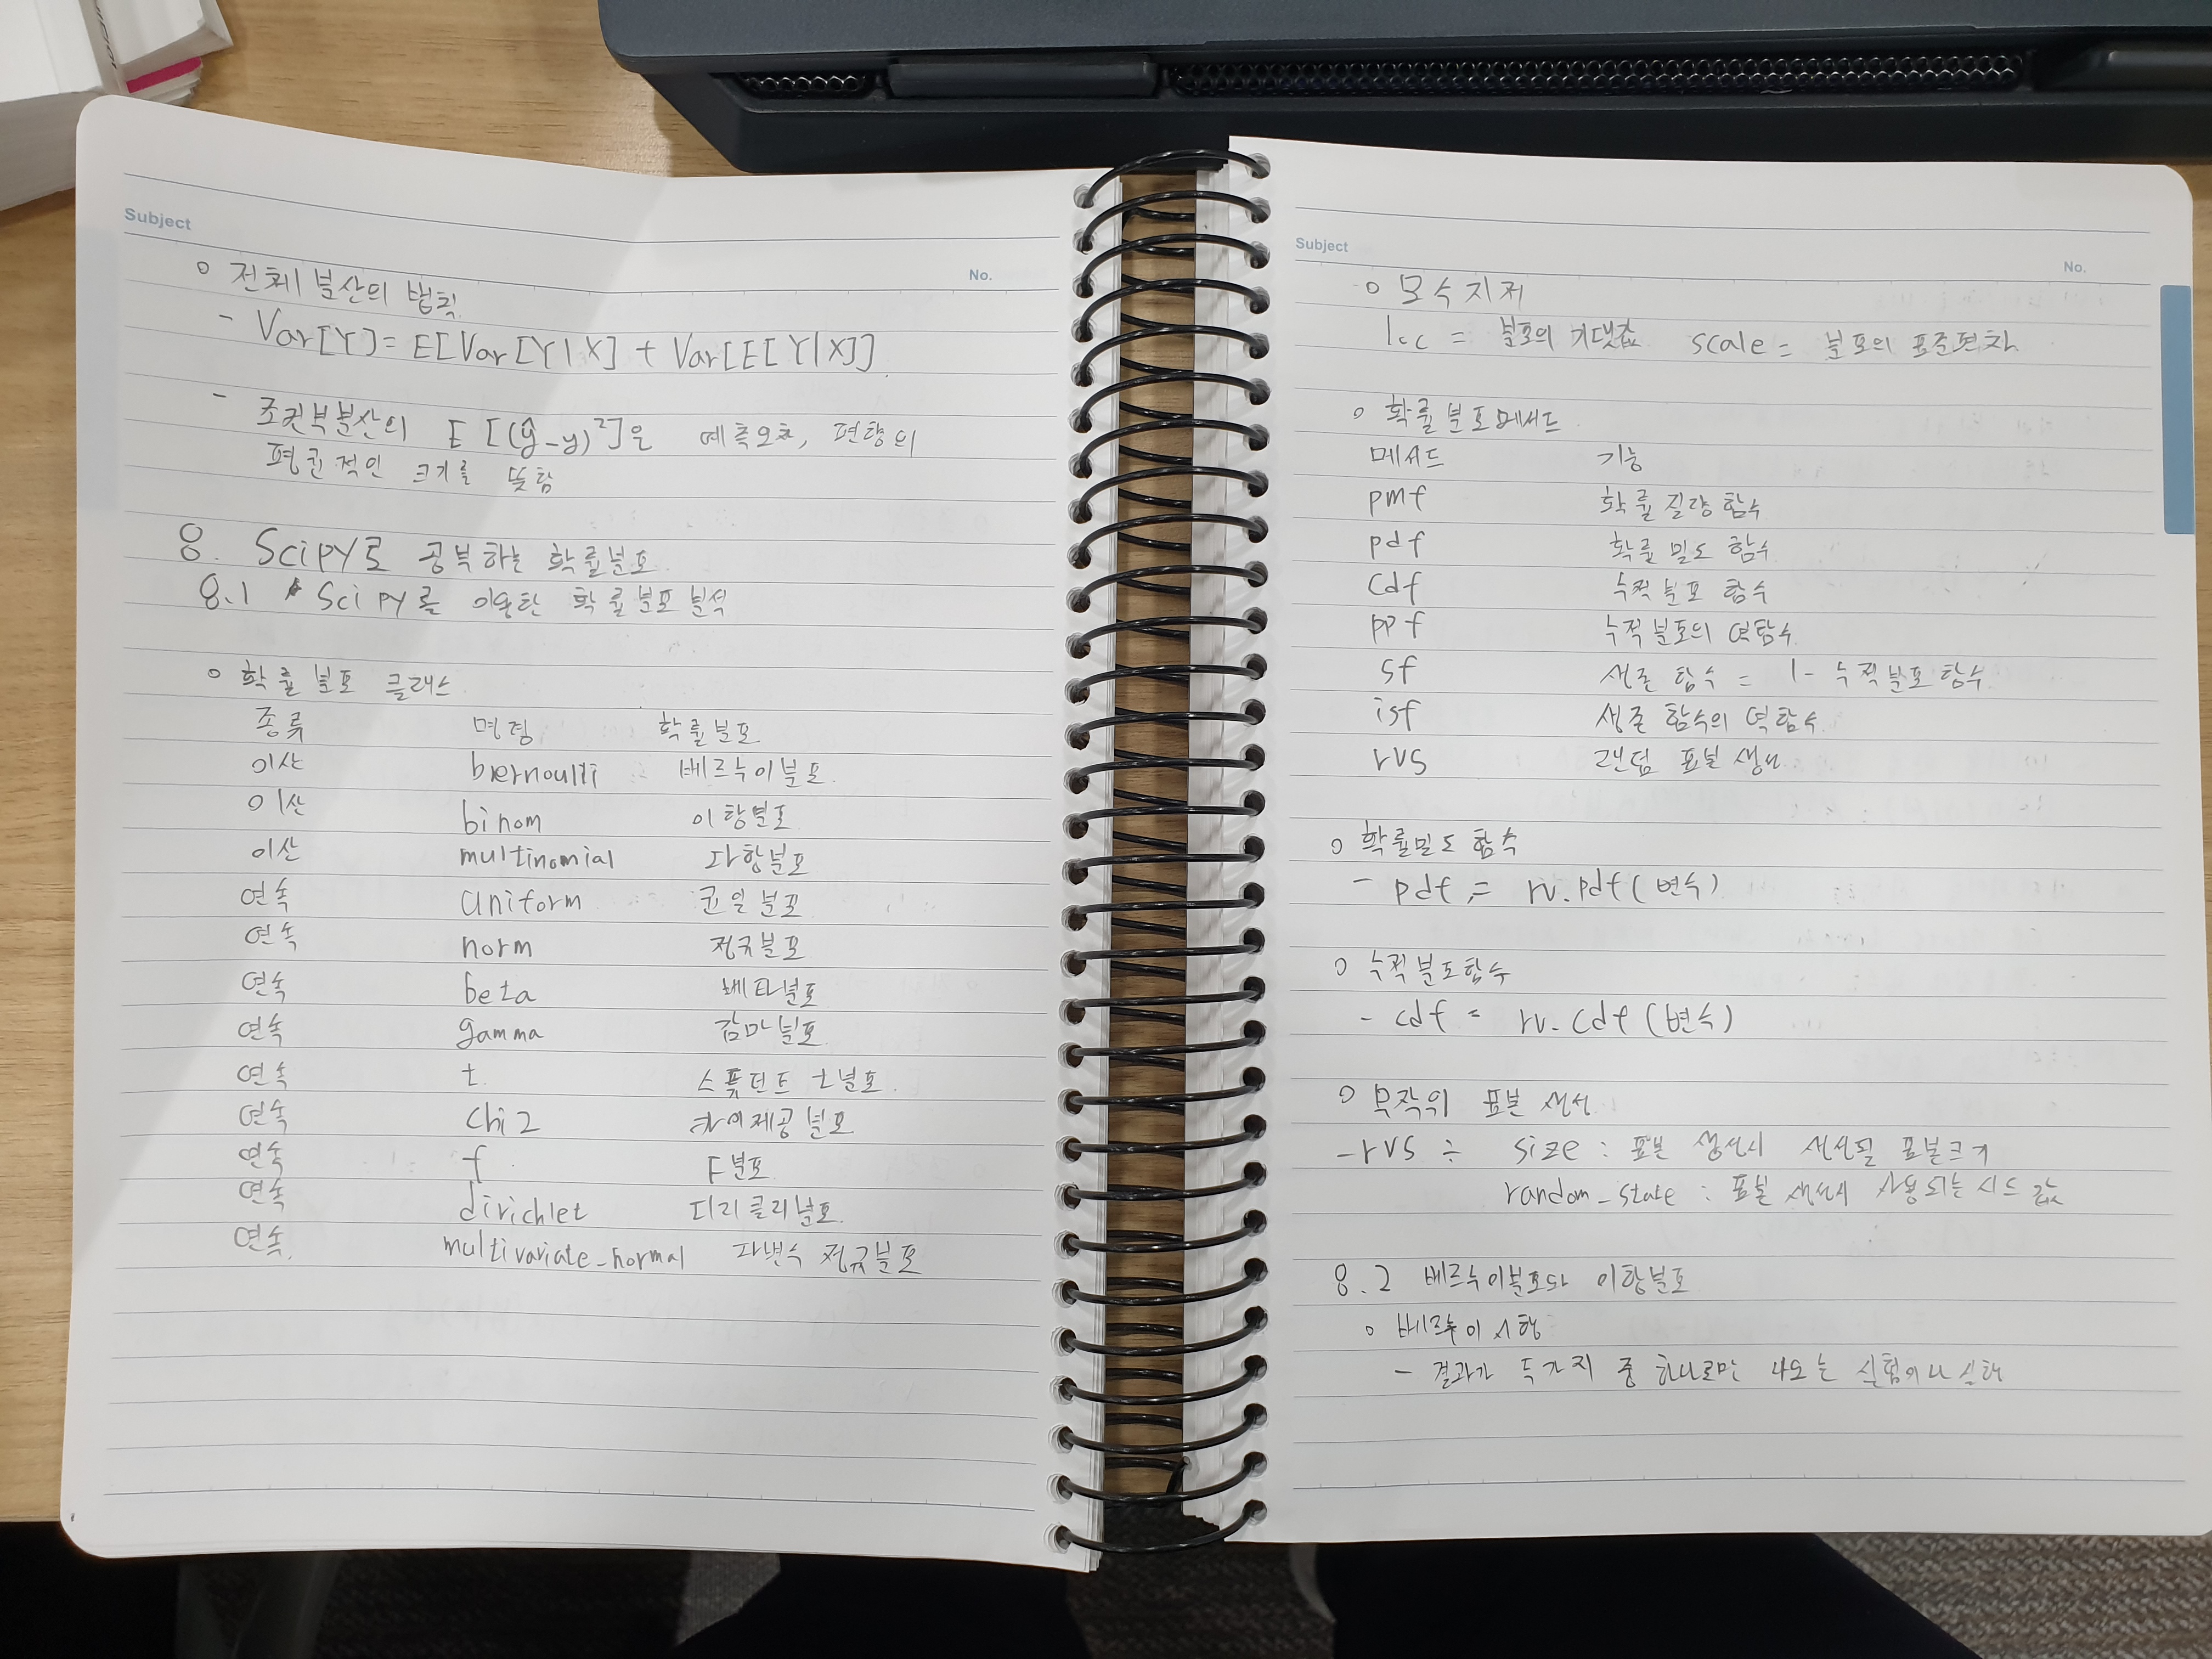 Subject
No.
○ 전체 분산의 법칙
- Var[Y] = E[Var[Y|X] + Var[E[Y|X]]
- 조건부분산의 E[(ŷ-y)²]은 예측오차, 편향의
평균적인 크기를 뜻함
8. Scipy로 공부하는 확률분포
8.1 Scipy를 이용한 확률분포 분석
○ 확률분포 클래스
종류 명령 확률분포
이산 bernoulli 베르누이분포
이산 binom 이항분포
이산 multinomial 다항분포
연속 uniform 균일분포
연속 norm 정규분포
연속 beta 베타분포
연속 gamma 감마분포
연속 t 스튜던트 t분포
연속 chi2 카이제곱분포
연속 f F분포
연속 dirichlet 디리클리분포
연속 multivariate_normal 다변수 정규분포
Subject
No.
○ 모수지저
loc = 분포의 기댓값 scale = 분포의 표준편차
○ 확률분포메서드
메서드 기능
pmf 확률질량함수
pdf 확률밀도함수
cdf 누적분포 함수
ppf 누적분포의 역함수
sf 생존 함수 = 1- 누적분포함수
isf 생존 함수의 역함수
rvs 랜덤 표본 생성
○ 확률밀도 함수
- pdf = rv.pdf(변수)
○ 누적분도함수
- cdf = rv.cdf(변수)
○ 무작위 표본 생성
-rvs ÷ size : 표본 생성시 생성될 표본크기
random_state : 표본 생성시 사용되는 시드 값
8.2 베르누이분포와 이항분포
○ 베르누이 시행
- 결과가 두가지 중 하나로만 나오는 실험이나 시행